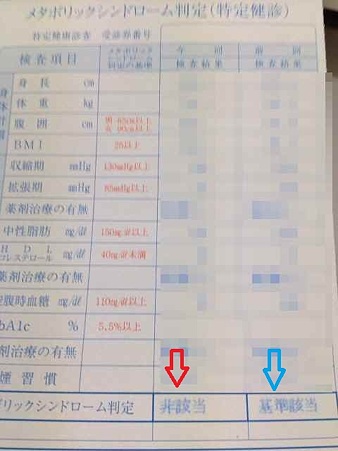 メタボリックシンドローム判定(特定健診)
特定健康診査 受診券番号
検査項目
メタボリック
シンドローム
判定の基準
今回
検査結果
前回
検査結果
身長 cm
体重 kg
腹囲 cm 男 85cm以上
女 90cm以上
BMI 25以上
収縮期 mmHg 130mmHg以上
拡張期 mmHg 85mmHg以上
薬剤治療の有無
中性脂肪 mg/dl 150mg/dl以上
HDL
コレステロール mg/dl 40mg/dl未満
薬剤治療の有無
空腹時血糖 mg/dl 110mg/dl以上
bA1c % 5.5%以上
剤治療の有無
煙習慣
リックシンドローム判定 非該当 基準該当